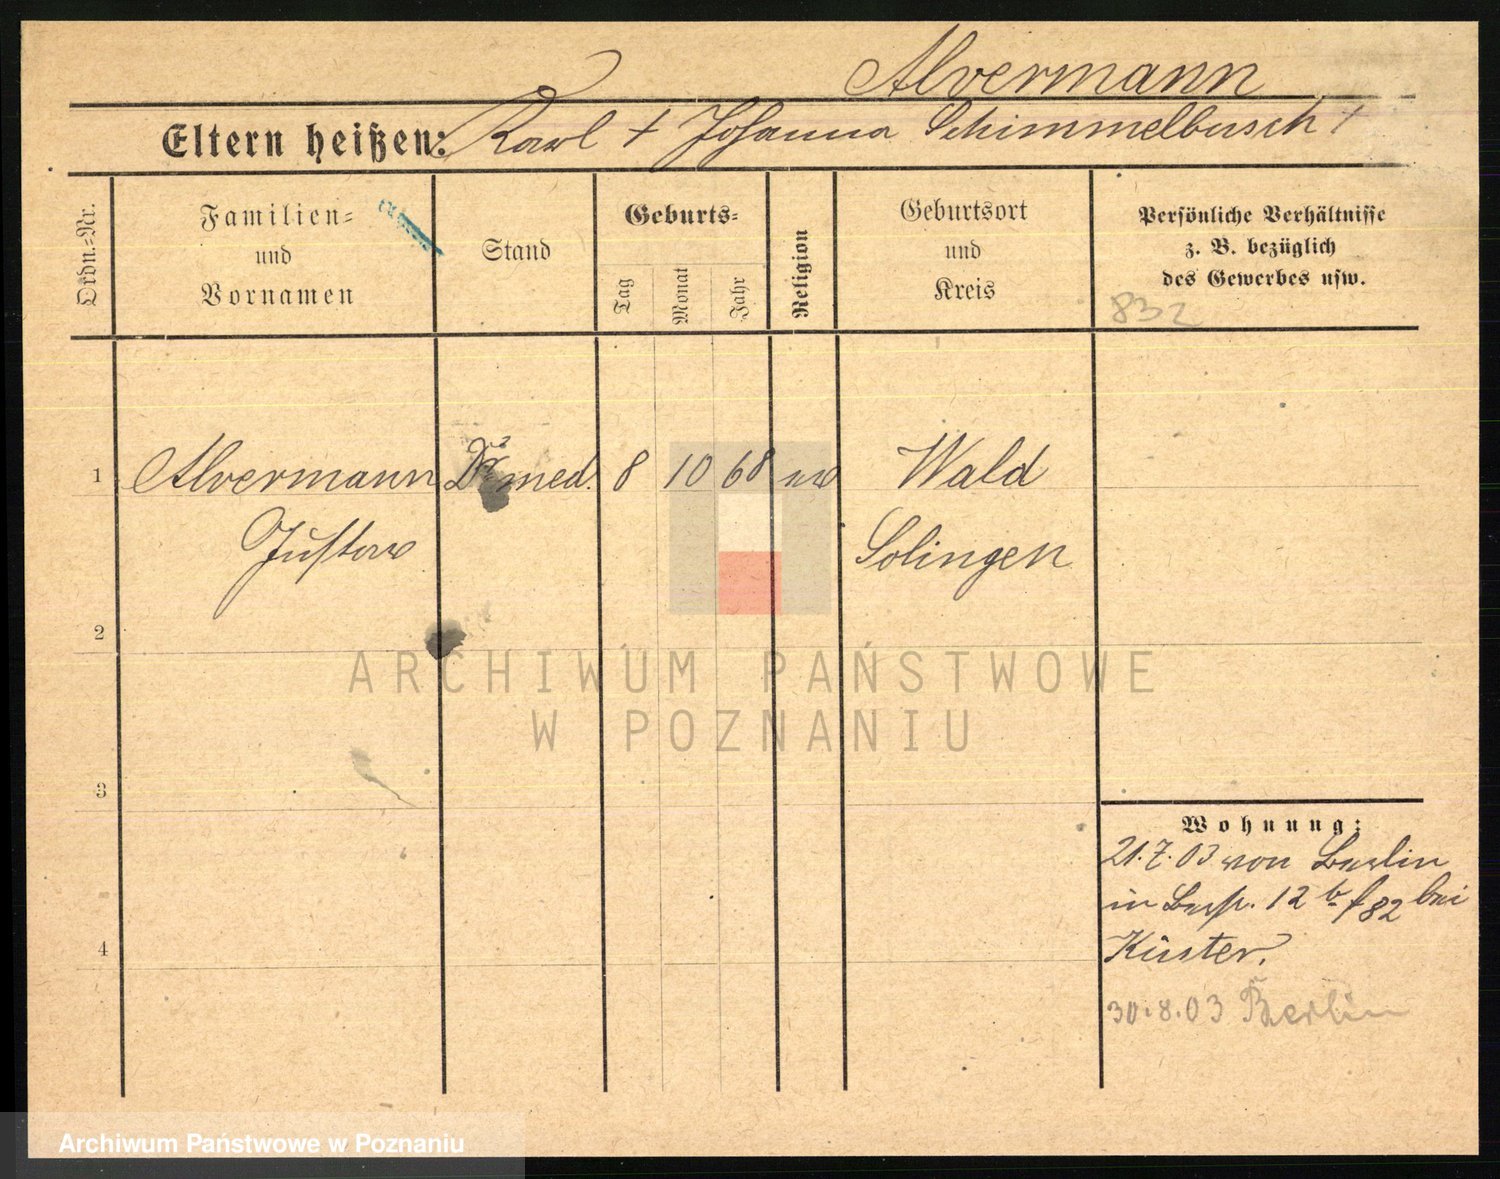 Alvermann
Eltern heißen: Karl † Johanna Schimmelbusch †
Ordn.=Nr.
Familien=
und
Vornamen
Stand
Geburts=
Tag
Monat
Jahr
Religion
Geburtsort
und
Kreis
Persönliche Verhältnisse
z. B. bezüglich
des Gewerbes usw.
832
1 Alvermann Dr med. 8 10 68 Wald
Gustav Solingen
2
3
4
Wohnung:
21.7.03 von Berlin
in 12 b 82 bei
Küster.
30.8.03 Berlin
ARCHIWUM PAŃSTWOWE
W POZNANIU
Archiwum Państwowe w Poznaniu